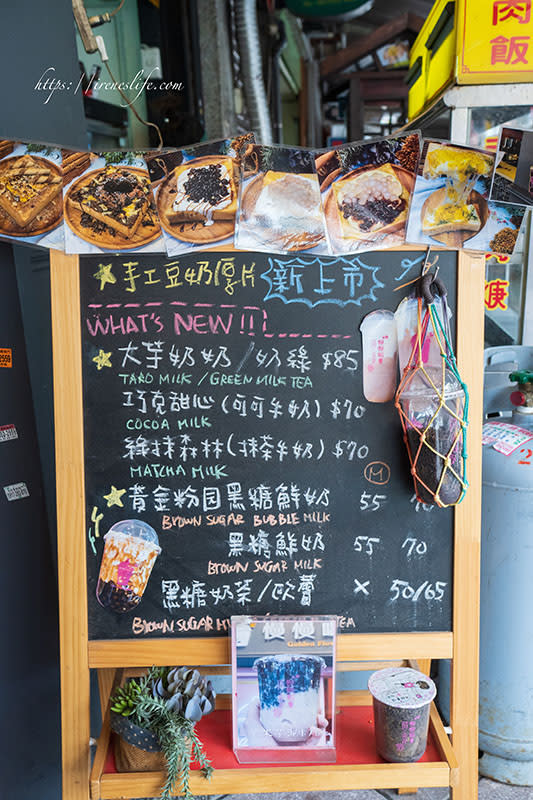 https://ireneslife.com
肉
飯
手工豆奶厚片 新上市
WHAT'S NEW!!
大芋奶奶/奶綠 $85
TARO MILK / GREEN MILK TEA
巧克甜心(可可牛奶) $70
COCOA MILK
綠抹森林(抹茶牛奶) $70
MATCHA MILK
M
黃金粉圓黑糖鮮奶 55 70
BROWN SUGAR BUBBLE MILK
黑糖鮮奶 55 70
BROWN SUGAR MILK
黑糖奶茶/欧蕾 × 50/65
BROWN SUGAR TEA